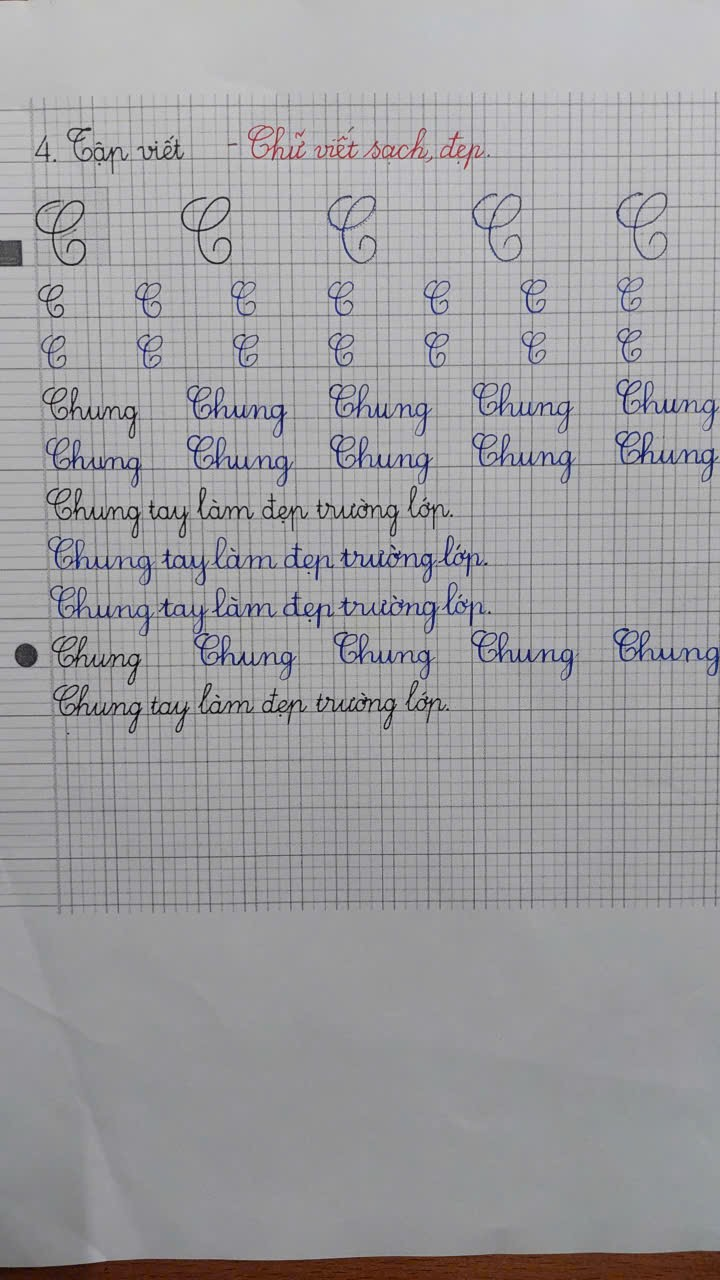 4. Tập viết - Chữ viết sạch, đẹp.
C C C C C
C C C C C C C
C C C C C C C
Chung Chung Chung Chung Chung
Chung Chung Chung Chung Chung
Chung tay làm đẹp trường lớp.
Chung tay làm đẹp trường lớp.
Chung tay làm đẹp trường lớp.
Chung Chung Chung Chung Chung
Chung tay làm đẹp trường lớp.